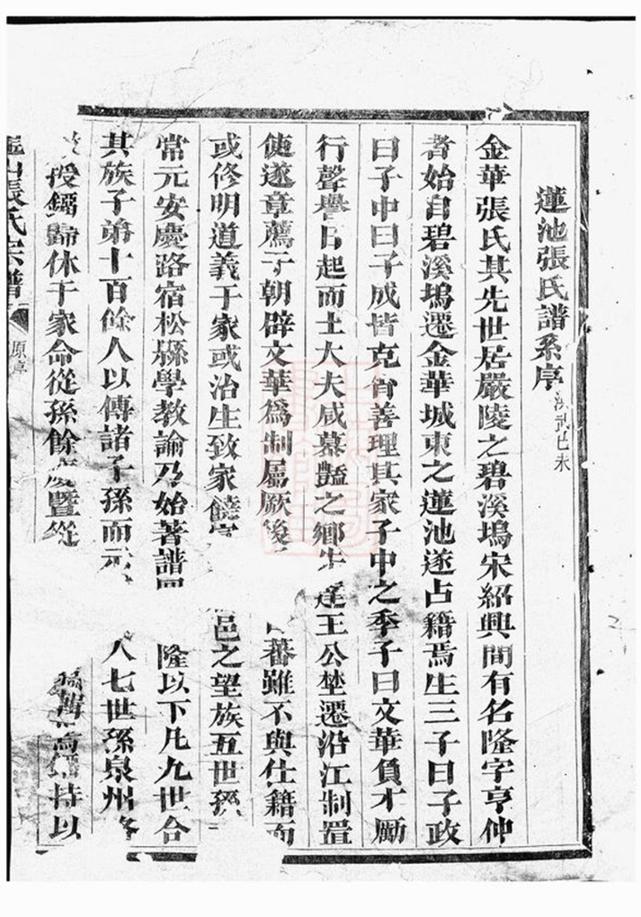 蓮池張氏譜系序洪武己未
金華張氏其先世居嚴陵之碧溪塢宋紹興間有名隆字亨仲
者始自碧溪塢遷金華城東之蓮池遂占籍焉生三子曰子政
曰子中曰子成皆克肯善理其家子中之季子曰文華負才勵
行聲譽日起而士大夫咸慕艷之鄉先達王公埜遷沿江制置
使遂章薦于朝辟文華爲制屬厥後蕃雖不與仕籍而
或修明道義于家或治生致家饒邑之望族五世孫
常元安慶路宿松縣學教諭乃始著譜隆以下凡九世合
其族子弟十百餘人以傳諸子孫而元人七世孫泉州路
授鐲歸休于家命從孫餘慶暨從持以
張氏宗譜